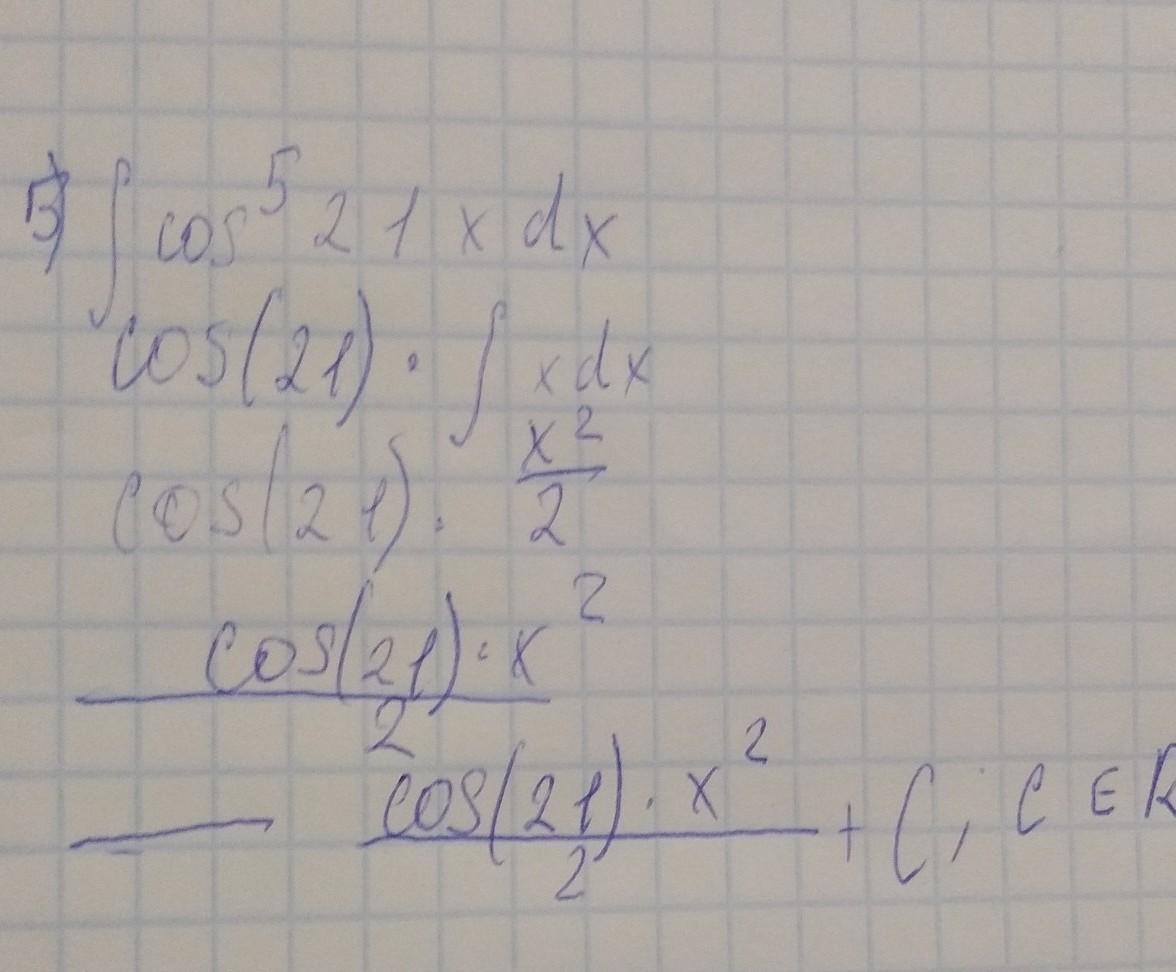 В) ∫ cos⁵ 21 x dx
cos(21) · ∫ x dx
cos(21) · x²/2
cos(21) · x² / 2
— cos(21) · x² / 2 + C, C ∈ R